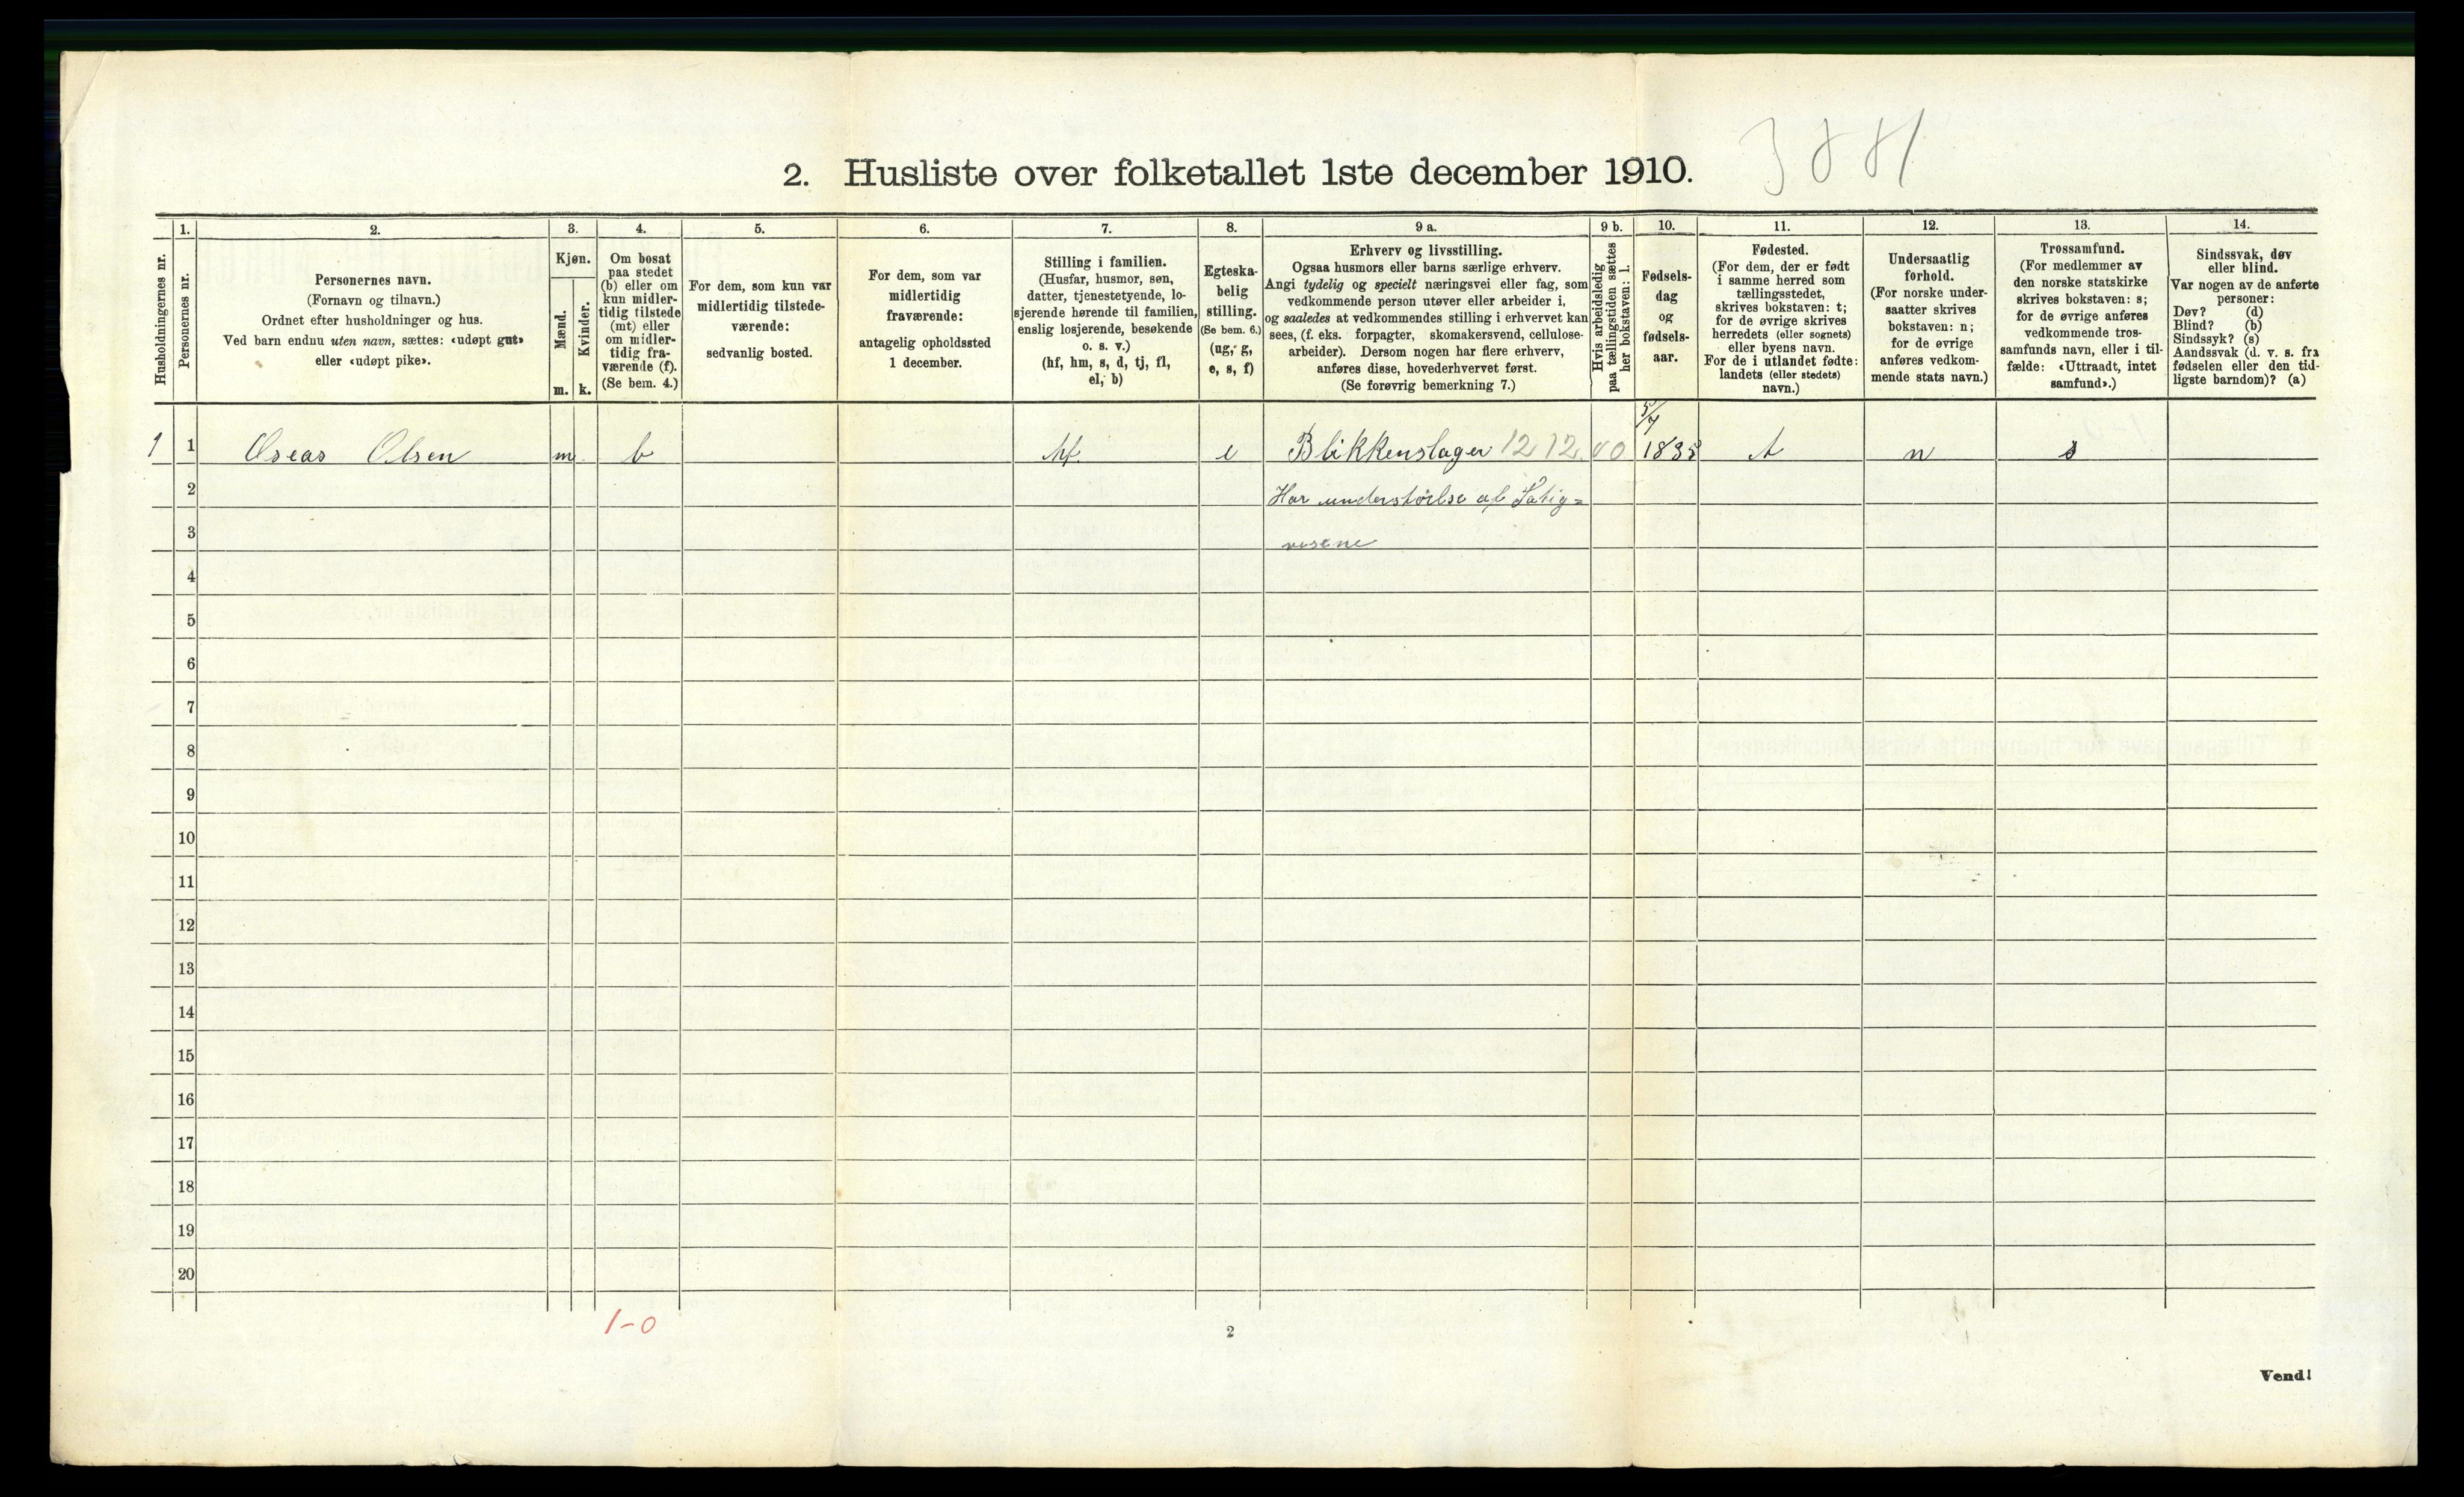 3881
2. Husliste over folketallet 1ste december 1910.
Husholdningernes nr.
1.
Personernes nr.
2.
Personernes navn.
(Fornavn og tilnavn.)
Ordnet efter husholdninger og hus.
Ved barn endnu uten navn, sættes: «udøpt gut»
eller «udøpt pike».
3.
Kjøn.
Mænd.
Kvinder.
m. k.
4.
Om bosat
paa stedet
(b) eller om
kun midler-
tidig tilstede
(mt) eller
om midler-
tidig fra-
værende (f).
(Se bem. 4.)
5.
For dem, som kun var
midlertidig tilstede-
værende:
sedvanlig bosted.
6.
For dem, som var
midlertidig
fraværende:
antagelig opholdssted
1 december.
7.
Stilling i familien.
(Husfar, husmor, søn,
datter, tjenestetyende, lo-
sjerende hørende til familien,
enslig losjerende, besøkende
o. s. v.)
(hf, hm, s, d, tj, fl,
el, b)
8.
Egteska-
belig
stilling.
(Se bem. 6.)
(ug, g,
e, s, f)
9 a.
Erhverv og livsstilling.
Ogsaa husmors eller barns særlige erhverv.
Angi tydelig og specielt næringsvei eller fag, som
vedkommende person utøver eller arbeider i,
og saaledes at vedkommendes stilling i erhvervet kan
sees, (f. eks. forpagter, skomakersvend, cellulose-
arbeider). Dersom nogen har flere erhverv,
anføres disse, hovederhvervet først.
(Se forøvrig bemerkning 7.)
9 b.
Hvis arbeidsledig
paa tællingstiden sættes
her bokstaven: l.
10.
Fødsels-
dag
og
fødsels-
aar.
11.
Fødested.
(For dem, der er født
i samme herred som
tællingsstedet,
skrives bokstaven: t;
for de øvrige skrives
herredets (eller sognets)
eller byens navn.
For de i utlandet fødte:
landets (eller stedets)
navn.)
12.
Undersaatlig
forhold.
(For norske under-
saatter skrives
bokstaven: n;
for de øvrige
anføres vedkom-
mende stats navn.)
13.
Trossamfund.
(For medlemmer av
den norske statskirke
skrives bokstaven: s;
for de øvrige anføres
vedkommende tros-
samfunds navn, eller i til-
fælde: «Uttraadt, intet
samfund».)
14.
Sindssvak, døv
eller blind.
Var nogen av de anførte
personer:
Døv? (d)
Blind? (b)
Sindssyk? (s)
Aandssvak (d. v. s. fra
fødselen eller den tid-
ligste barndom)? (a)
5/7
1 1 Oseas Olsen m b hf. e Blikkenslager 12 12. 00 1835 t n s
2 Har understöelse af Fatig=
3 vesene
4
5
6
7
8
9
10
11
12
13
14
15
16
17
18
19
20
1-0
2
Vend!